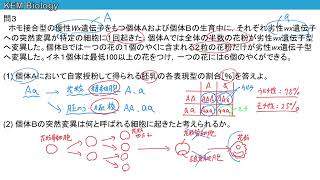 KEM Biology
問3
ホモ接合型の優性Wx遺伝子をもつ個体Aおよび個体Bの生育中に、それぞれ劣性wx遺伝子
への突然変異が特定の細胞に1回起きた。個体Aでは全体の半数の花粉が劣性wx遺伝子型
へ変異した。個体Bでは一つの花の1個のやくに含まれる2粒の花粉だけが劣性wx遺伝子型
へ変異した。イネ1個体は最低100以上の花をつけ、一つの花には6個のやくができる。
(1) 個体Aにおいて自家授粉して得られる胚乳の各表現型の割合(%)を答えよ。
Aa
A . a
A . a
75%
25%
(2) 個体Bの突然変異は何と呼ばれる細胞に起きたと考えられるか。